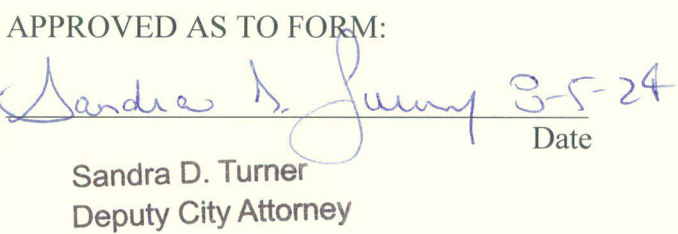 APPROVED AS TO FORM:
Sandra D. Turner 3-5-24
Date
Sandra D. Turner
Deputy City Attorney